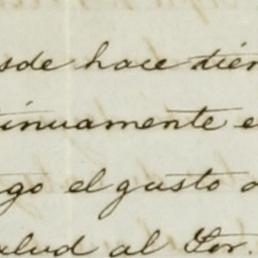 sde hace tiem
tinuamente e
go el gusto d
alud al Sor.